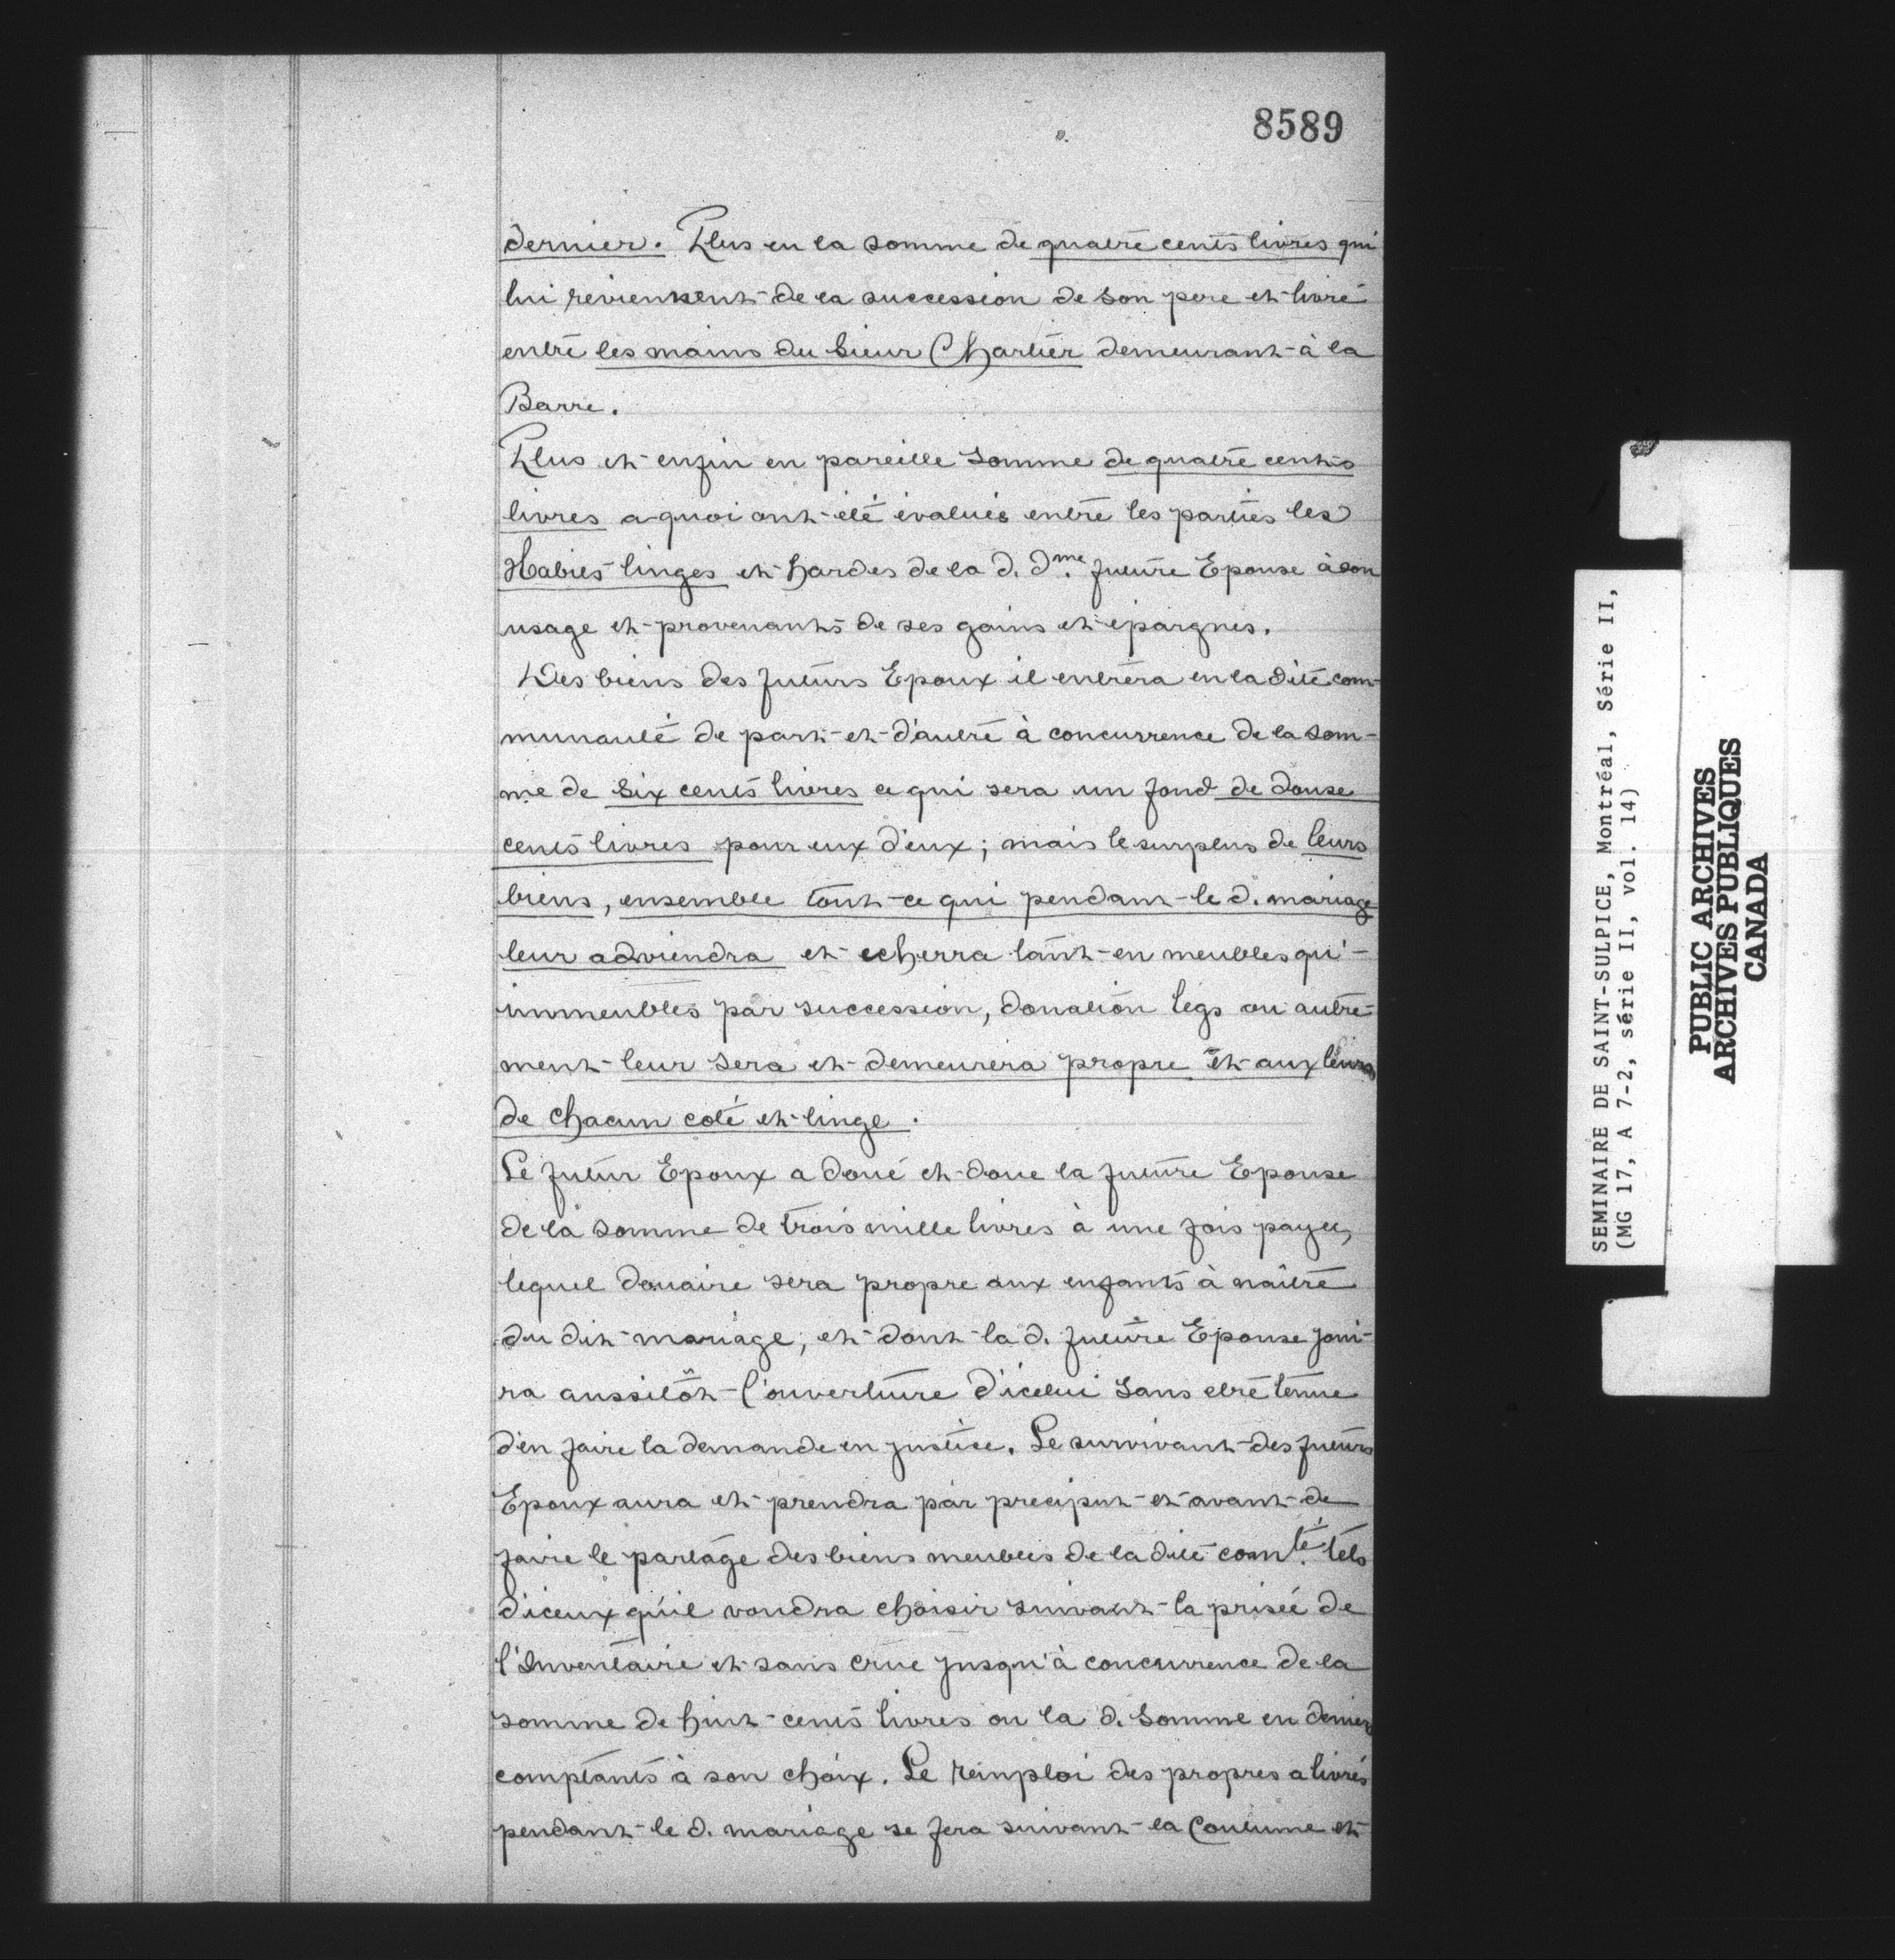 8589
dernier. Plus en la somme de quatre cents livres qui
lui reviennent de la succession de son pere et livré
entre les mains du Sieur Chartier demeurant à la
Barre.
Plus et enfin en pareille somme de quatre cents
livres a quoi ont été évalués entre les parties les
Habits linges et hardes de la d. dme. future Epouse à son
usage et provenants de ses gains et épargnes.
Des biens des futurs Epoux il entrera en la dite com-
munauté de part et d'autre à concurrence de la som-
me de six cents livres ce qui sera un fond de douse
cents livres pour eux d'eux; mais le surplus de leurs
biens, ensemble tout ce qui pendant le d. mariage
leur adviendra et echerra tant en meubles qu'-
immeubles par succession, donation legs ou autre-
ment leur sera et demeurera propre et aux leurs
de chacun coté et linge.
Le futur Epoux a doué et doue la future Epouse
de la somme de trois mille livres à une fois payer,
lequel douaire sera propre aux enfants à naître
du dit mariage, et dont la d. future Epouse joui-
ra aussitôt l'ouverture d'icelui sans etre tenue
d'en faire la demande en justice. Le survivant des futurs
Epoux aura et prendra par preciput et avant de
faire le partage des biens meubles de la dite comté. tels
d'iceux qu'il voudra choisir suivant la prisée de
l'Inventaire et sans crue jusqu'à concurrence de la
somme de huit cents livres ou la d. somme en deniers
comptants à son choix. Le remploi des propres a livrés
pendant le d. mariage se fera suivant la Coutume et
SEMINAIRE DE SAINT-SULPICE, Montréal, Série II,
(MG 17, A 7-2, série II, vol. 14)
PUBLIC ARCHIVES
ARCHIVES PUBLIQUES
CANADA